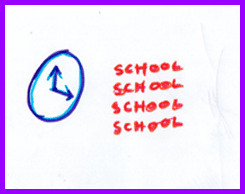 SCHOOL
SCHOOL
SCHOOL
SCHOOL